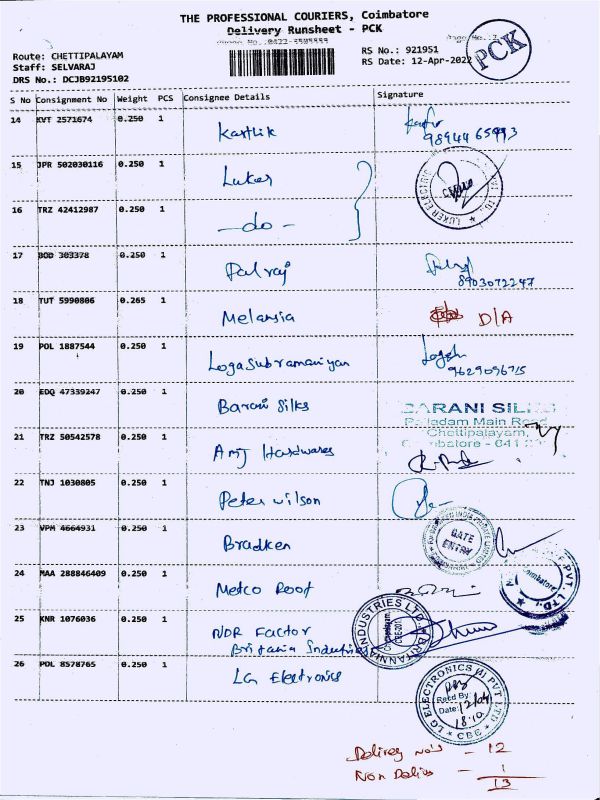 THE PROFESSIONAL COURIERS, Coimbatore
Delivery Runsheet - PCK
PCK
Route: CHETTIPALAYAM
Staff: SELVARAJ
DRS No.: DCJB92195102
RS No.: 921951
RS Date: 12-Apr-2022
S No Consignment No Weight PCS Consignee Details Signature
14 KVT 2571674 0.250 1 Karthik
15 JPR 502030116 0.250 1 Luker
16 TRZ 42412987 0.250 1 -do-
LUKER ELECTRIC
17 BOD 303378 0.250 1 Palraj 8903072247
18 TUT 5990806 0.265 1 Melansia D/A
19 POL 1887544 0.250 1 Logasubramaniyan 9629096715
20 EDQ 47339247 0.250 1 Barani Silks
BARANI SILKS
Palladam Main Road
Chettipalayam,
21 TRZ 50542578 0.250 1 Hardwares
22 TNJ 1030805 0.250 1 Peter wilson
23 VPM 4664931 0.250 1 Bradken
GATE ENTRY
24 MAA 288846409 0.250 1 Metco Roof
Coimbatore
25 KNR 1076036 0.250 1 NDR Factor
Britania Industries
INDUSTRIES LTD
26 POL 8578765 0.250 1 LG Electronics
LG ELECTRONICS (I) PVT LTD
Recd By:
Date: 12/04
18:10
CBE
Delivery no's - 12
Non Deliv - 1
13